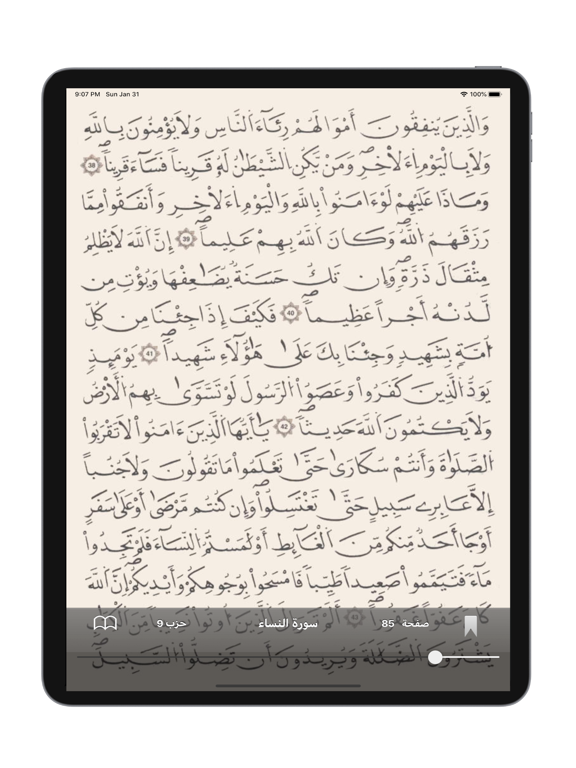 9:07 PM Sun Jan 31 100%
وَالَّذِينَ يُنفِقُونَ أَمْوَٰلَهُمْ رِئَآءَ اَلنَّاسِ وَلَا يُؤْمِنُونَ بِاللَّهِ
وَلَا بِالْيَوْمِ اِءَلَاخِرِ وَمَنْ يَّكُنِ اِلشَّيْطَٰنُ لَهُۥ قَرِيناً فَسَآءَ قَرِيناً 38
وَمَاذَا عَلَيْهِمْ لَوْ ءَامَنُواْ بِاللَّهِ وَالْيَوْمِ اِءَلَاخِرِ وَأَنفَقُواْ مِمَّا
رَزَقَهُمُ اُللَّهُ وَكَانَ اَللَّهُ بِهِمْ عَلِيماً 39 إِنَّ اَللَّهَ لَا يَظْلِمُ
مِثْقَالَ ذَرَّةٍ وَإِن تَكُ حَسَنَةٌ يُضَٰعِفْهَا وَيُؤْتِ مِن
لَّدُنْهُ أَجْراً عَظِيماً 40 فَكَيْفَ إِذَا جِئْنَا مِن كُلِّ
أُمَّةِۢ بِشَهِيدٍ وَجِئْنَا بِكَ عَلَىٰ هَٰٓؤُلَآءِ شَهِيداً 41 يَوْمَئِذٍ
يَوَدُّ اُلَّذِينَ كَفَرُواْ وَعَصَوُاْ اُلرَّسُولَ لَوْ تَسَّوَّىٰ بِهِمُ اُلَارْضُ
وَلَا يَكْتُمُونَ اَللَّهَ حَدِيثاً 42 يَٰٓأَيُّهَا اَلَّذِينَ ءَامَنُواْ لَا تَقْرَبُواْ
اُلصَّلَوٰةَ وَأَنتُمْ سُكَٰرَىٰ حَتَّىٰ تَعْلَمُواْ مَا تَقُولُونَ وَلَا جُنُباً
إِلَّا عَابِرِے سَبِيلٍ حَتَّىٰ تَغْتَسِلُواْ وَإِن كُنتُم مَّرْضَىٰ أَوْ عَلَىٰ سَفَرٍ
أَوْ جَآءَ احَدٌ مِّنكُم مِّنَ اَلْغَآئِطِ أَوْ لَٰمَسْتُمُ اُلنِّسَآءَ فَلَمْ تَجِدُواْ
مَآءً فَتَيَمَّمُواْ صَعِيداً طَيِّباً فَامْسَحُواْ بِوُجُوهِكُمْ وَأَيْدِيكُمْ إِنَّ اَللَّهَ
كَانَ عَفُوّاً غَفُوراً 43 أَلَمْ تَرَ إِلَى اَلَّذِينَ أُوتُواْ نَصِيباً مِّنَ اَلْكِتَٰبِ
صفحة 85 سورة النساء حزب 9
يَشْتَرُونَ اَلضَّلَٰلَةَ وَيُرِيدُونَ أَن تَضِلُّواْ اُلسَّبِيلَ